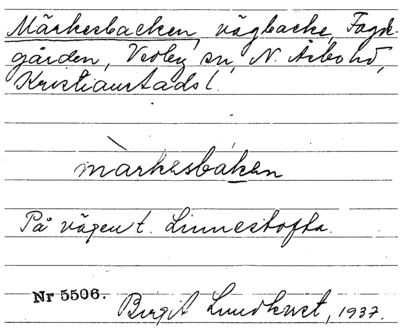 Märkesbacken, vägbacke, Fogd-
gården, Verby sn, N. Åsbo hd,
Kristianstads l.
màrkesbáken
På vägen t. Linnestofta.
Nr 5506.
Birgit Lundkvist, 1937.